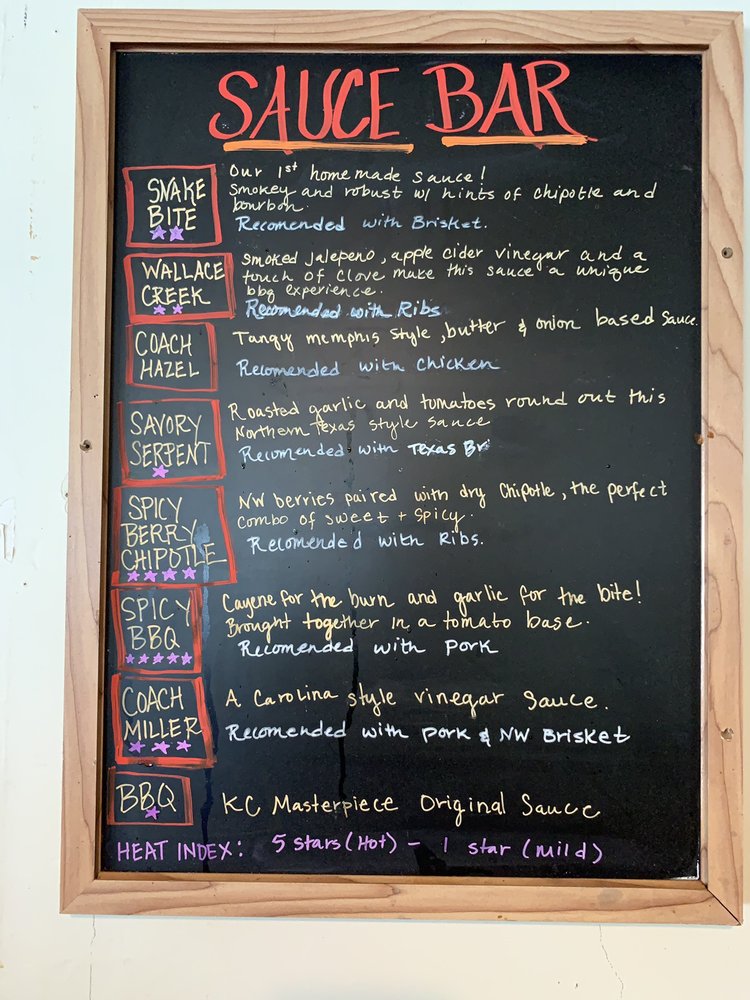 SAUCE BAR
SNAKE
BITE
Our 1st homemade sauce!
Smokey and robust w/ hints of chipotle and
bourbon.
Recomended with Brisket.
WALLACE
CREEK
Smoked Jalepeno, apple cider vinegar and a
touch of clove make this sauce a unique
bbq experience.
Recomended with Ribs
COACH
HAZEL
Tangy memphis style, butter & onion based sauce.
Recomended with Chicken
SAVORY
SERPENT
Roasted garlic and tomatoes round out this
Northern Texas style sauce
Recomended with Texas Br
SPICY
BERRY
CHIPOTLE
NW berries paired with dry Chipotle, the perfect
combo of sweet + spicy.
Recomended with Ribs.
SPICY
BBQ
Cayene for the burn and garlic for the bite!
Brought together in a tomato base.
Recomended with Pork
COACH
MILLER
A Carolina style vinegar sauce.
Recomended with Pork & NW Brisket
BBQ
KC Masterpiece Original Sauce
HEAT INDEX: 5 stars (Hot) - 1 star (mild)